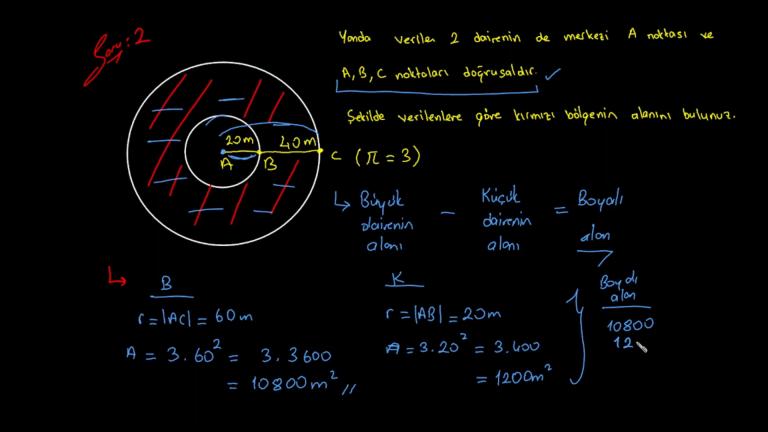 Soru: 2
Yanda verilen 2 dairenin de merkezi A noktası ve
A, B, C noktaları doğrusaldır.
Şekilde verilenlere göre kırmızı bölgenin alanını bulunuz.
20m 40m
A B C (π = 3)
↳ Büyük dairenin alanı − Küçük dairenin alanı = Boyalı alan
B
r = |AC| = 60m
A = 3.60² = 3.3600
= 10800m² //
K
r = |AB| = 20m
A = 3.20² = 3.400
= 1200m²
Boyalı
alan
10800
12